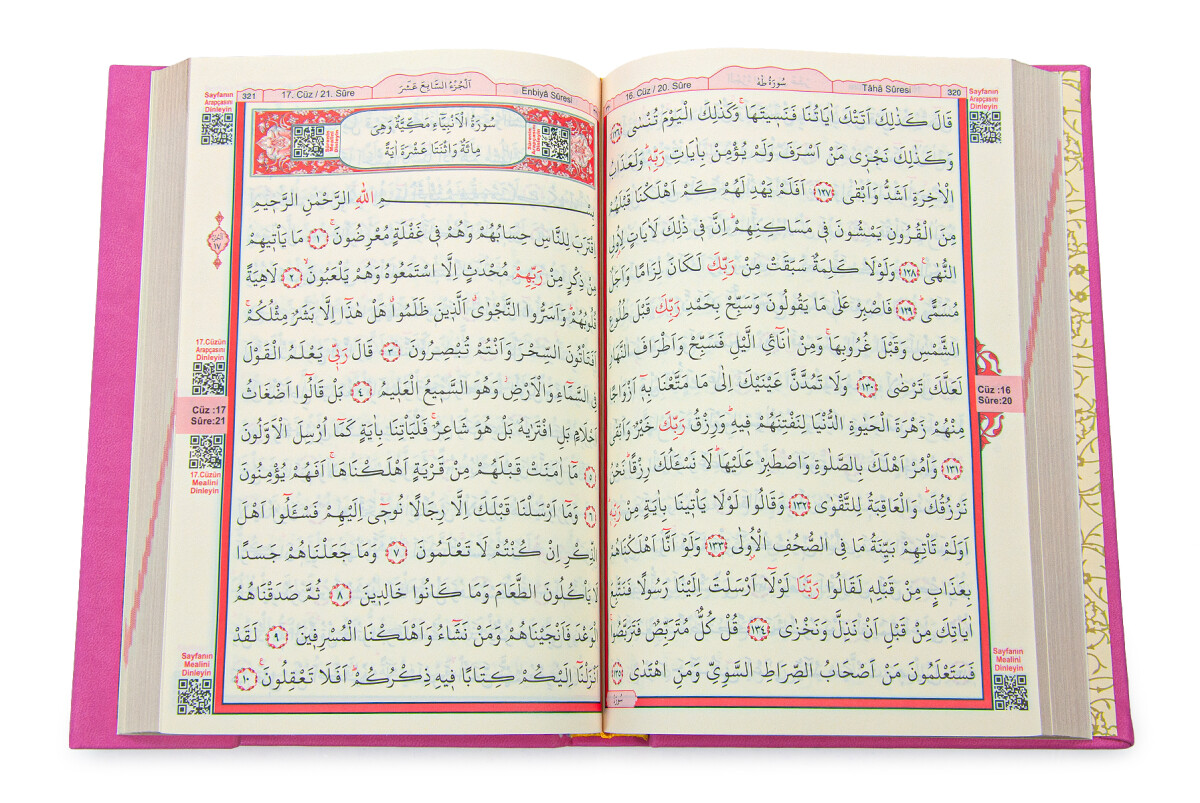 16. Cüz / 20. Sûre
سُورَةُ طٰهٰ
Tâhâ Sûresi
320
Sayfanın
Arapçasını
Dinleyin
قَالَ كَذٰلِكَ اَتَتْكَ اٰيَاتُنَا فَنَس۪يتَهَاۚ وَكَذٰلِكَ الْيَوْمَ تُنْسٰى ﴿١٢٦﴾
وَكَذٰلِكَ نَجْز۪ي مَنْ اَسْرَفَ وَلَمْ يُؤْمِنْ بِاٰيَاتِ رَبِّه۪ۜ وَلَعَذَابُ
الْاٰخِرَةِ اَشَدُّ وَاَبْقٰى ﴿١٢٧﴾ اَفَلَمْ يَهْدِ لَهُمْ كَمْ اَهْلَكْنَا قَبْلَهُمْ
مِنَ الْقُرُونِ يَمْشُونَ ف۪ي مَسَاكِنِهِمْۜ اِنَّ ف۪ي ذٰلِكَ لَاٰيَاتٍ لِاُو۬لِي
النُّهٰى۟ ﴿١٢٨﴾ وَلَوْلَا كَلِمَةٌ سَبَقَتْ مِنْ رَبِّكَ لَكَانَ لِزَامًا وَاَجَلٌ
مُسَمًّىۜ ﴿١٢٩﴾ فَاصْبِرْ عَلٰى مَا يَقُولُونَ وَسَبِّحْ بِحَمْدِ رَبِّكَ قَبْلَ طُلُوعِ
الشَّمْسِ وَقَبْلَ غُرُوبِهَاۚ وَمِنْ اٰنَآئِ الَّيْلِ فَسَبِّحْ وَاَطْرَافَ النَّهَارِ
لَعَلَّكَ تَرْضٰى ﴿١٣٠﴾ وَلَا تَمُدَّنَّ عَيْنَيْكَ اِلٰى مَا مَتَّعْنَا بِه۪ٓ اَزْوَاجًا
مِنْهُمْ زَهْرَةَ الْحَيٰوةِ الدُّنْيَا لِنَفْتِنَهُمْ ف۪يهِۜ وَرِزْقُ رَبِّكَ خَيْرٌ وَاَبْقٰى
﴿١٣١﴾ وَأْمُرْ اَهْلَكَ بِالصَّلٰوةِ وَاصْطَبِرْ عَلَيْهَاۜ لَا نَسْـَٔلُكَ رِزْقًاۜ نَحْنُ
نَرْزُقُكَۜ وَالْعَاقِبَةُ لِلتَّقْوٰى ﴿١٣٢﴾ وَقَالُوا لَوْلَا يَأْت۪ينَا بِاٰيَةٍ مِنْ رَبِّه۪ۜ
اَوَلَمْ تَأْتِهِمْ بَيِّنَةُ مَا فِي الصُّحُفِ الْاُو۫لٰى ﴿١٣٣﴾ وَلَوْ اَنَّٓا اَهْلَكْنَاهُمْ
بِعَذَابٍ مِنْ قَبْلِه۪ لَقَالُوا رَبَّنَا لَوْلَٓا اَرْسَلْتَ اِلَيْنَا رَسُولًا فَنَتَّبِعَ
اٰيَاتِكَ مِنْ قَبْلِ اَنْ نَذِلَّ وَنَخْزٰى ﴿١٣٤﴾ قُلْ كُلٌّ مُتَرَبِّصٌ فَتَرَبَّصُواۚ
فَسَتَعْلَمُونَ مَنْ اَصْحَابُ الصِّرَاطِ السَّوِيِّ وَمَنِ اهْتَدٰى ﴿١٣٥﴾
Cüz :16
Sûre:20
Sayfanın
Mealini
Dinleyin
321
17. Cüz / 21. Sûre
اَلْجُزْءُ السَّابِعَ عَشَرَ
Enbiyâ Sûresi
Sayfanın
Arapçasını
Dinleyin
سُورَةُ الْاَنْبِيَٓاءِ مَكِّيَّةٌ وَهِيَ
مِائَةٌ وَاثْنَتَا عَشْرَةَ اٰيَةً
بِسْمِ اللّٰهِ الرَّحْمٰنِ الرَّح۪يمِ
اِقْتَرَبَ لِلنَّاسِ حِسَابُهُمْ وَهُمْ ف۪ي غَفْلَةٍ مُعْرِضُونَۚ ﴿١﴾ مَا يَأْت۪يهِمْ
مِنْ ذِكْرٍ مِنْ رَبِّهِمْ مُحْدَثٍ اِلَّا اسْتَمَعُوهُ وَهُمْ يَلْعَبُونَۙ ﴿٢﴾ لَاهِيَةً
قُلُوبُهُمْۜ وَاَسَرُّوا النَّجْوٰىۗ اَلَّذ۪ينَ ظَلَمُواۗ هَلْ هٰذَٓا اِلَّا بَشَرٌ مِثْلُكُمْۚ
اَفَتَأْتُونَ السِّحْرَ وَاَنْتُمْ تُبْصِرُونَ ﴿٣﴾ قَالَ رَبّ۪ي يَعْلَمُ الْقَوْلَ
فِي السَّمَٓاءِ وَالْاَرْضِۘ وَهُوَ السَّم۪يعُ الْعَل۪يمُ ﴿٤﴾ بَلْ قَالُٓوا اَضْغَاثُ
اَحْلَامٍ بَلِ افْتَرٰيهُ بَلْ هُوَ شَاعِرٌۚ فَلْيَأْتِنَا بِاٰيَةٍ كَمَٓا اُرْسِلَ الْاَوَّلُونَ
﴿٥﴾ مَٓا اٰمَنَتْ قَبْلَهُمْ مِنْ قَرْيَةٍ اَهْلَكْنَاهَاۚ اَفَهُمْ يُؤْمِنُونَ
﴿٦﴾ وَمَٓا اَرْسَلْنَا قَبْلَكَ اِلَّا رِجَالًا نُوح۪ٓي اِلَيْهِمْ فَسْـَٔلُٓوا اَهْلَ
الذِّكْرِ اِنْ كُنْتُمْ لَا تَعْلَمُونَ ﴿٧﴾ وَمَا جَعَلْنَاهُمْ جَسَدًا
لَا يَأْكُلُونَ الطَّعَامَ وَمَا كَانُوا خَالِد۪ينَ ﴿٨﴾ ثُمَّ صَدَقْنَاهُمُ
الْوَعْدَ فَاَنْجَيْنَاهُمْ وَمَنْ نَشَٓاءُ وَاَهْلَكْنَا الْمُسْرِف۪ينَ ﴿٩﴾ لَقَدْ
اَنْزَلْنَٓا اِلَيْكُمْ كِتَابًا ف۪يهِ ذِكْرُكُمْۜ اَفَلَا تَعْقِلُونَ۟ ﴿١٠﴾
17.Cüzün
Arapçasını
Dinleyin
Cüz :17
Sûre:21
17.Cüzün
Mealini
Dinleyin
Sayfanın
Mealini
Dinleyin